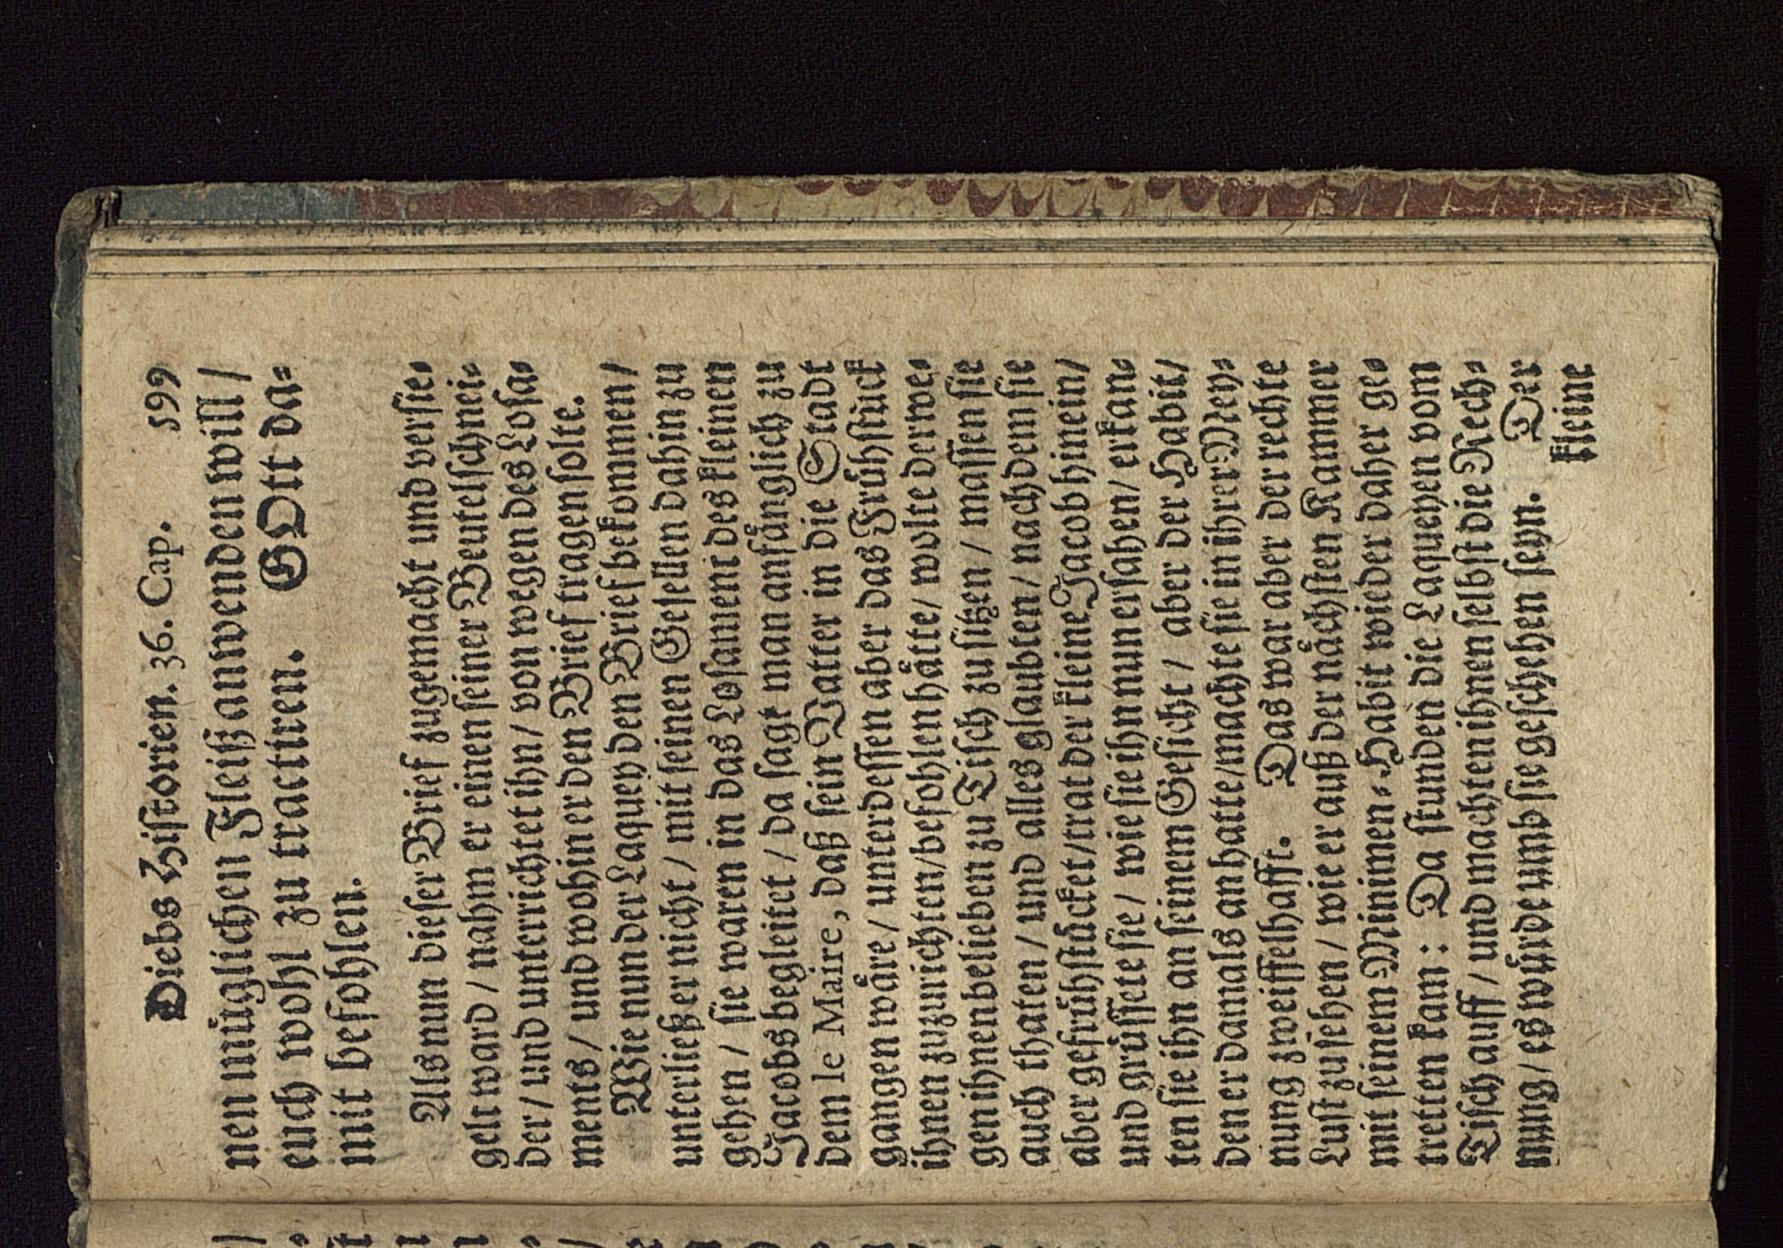 Diebs Historien. 36. Cap. 599
nen müglichen Fleiß anwenden will /
euch wohl zu tractiren. GOtt da-
mit befohlen.
Als nun dieser Brief zugemacht und versie-
gelt ward / nahm er einen seiner Beutelschnei-
der / und unterrichtet ihn / von wegen des Losa-
ments / und wohin er den Brief tragen solte.
Wie nun der Laquey den Brief bekommen /
unterließ er nicht / mit seinen Gesellen dahin zu
gehen / sie waren in das Losament des kleinen
Jacobs begleitet / da sagt man anfänglich zu
dem le Maire, daß sein Vatter in die Stadt
gangen wäre / unterdessen aber das Frühstück
ihnen zuzurichten / befohlen hätte / wolte derwe-
gen ihnen belieben zu Tisch zu sitzen / massen sie
auch thaten / und alles glaubten / nachdem sie
aber gefrühstücket / trat der kleine Jacob hinein /
und grüssete sie / wie sie ihn nun ersahen / erkan-
ten sie ihn an seinem Gesicht / aber der Habit /
den er damals anhatte / machte sie in ihrer Mey-
nung zweiffelhafft. Das war aber der rechte
Lust zu sehen / wie er auß der nächsten Kammer
mit seinem Minimen-Habit wieder daher ge-
tretten kam: Da stunden die Laqueyen vom
Tisch auff / und machten ihnen selbst die Rech-
nung / es würde umb sie geschehen seyn. Der
kleine